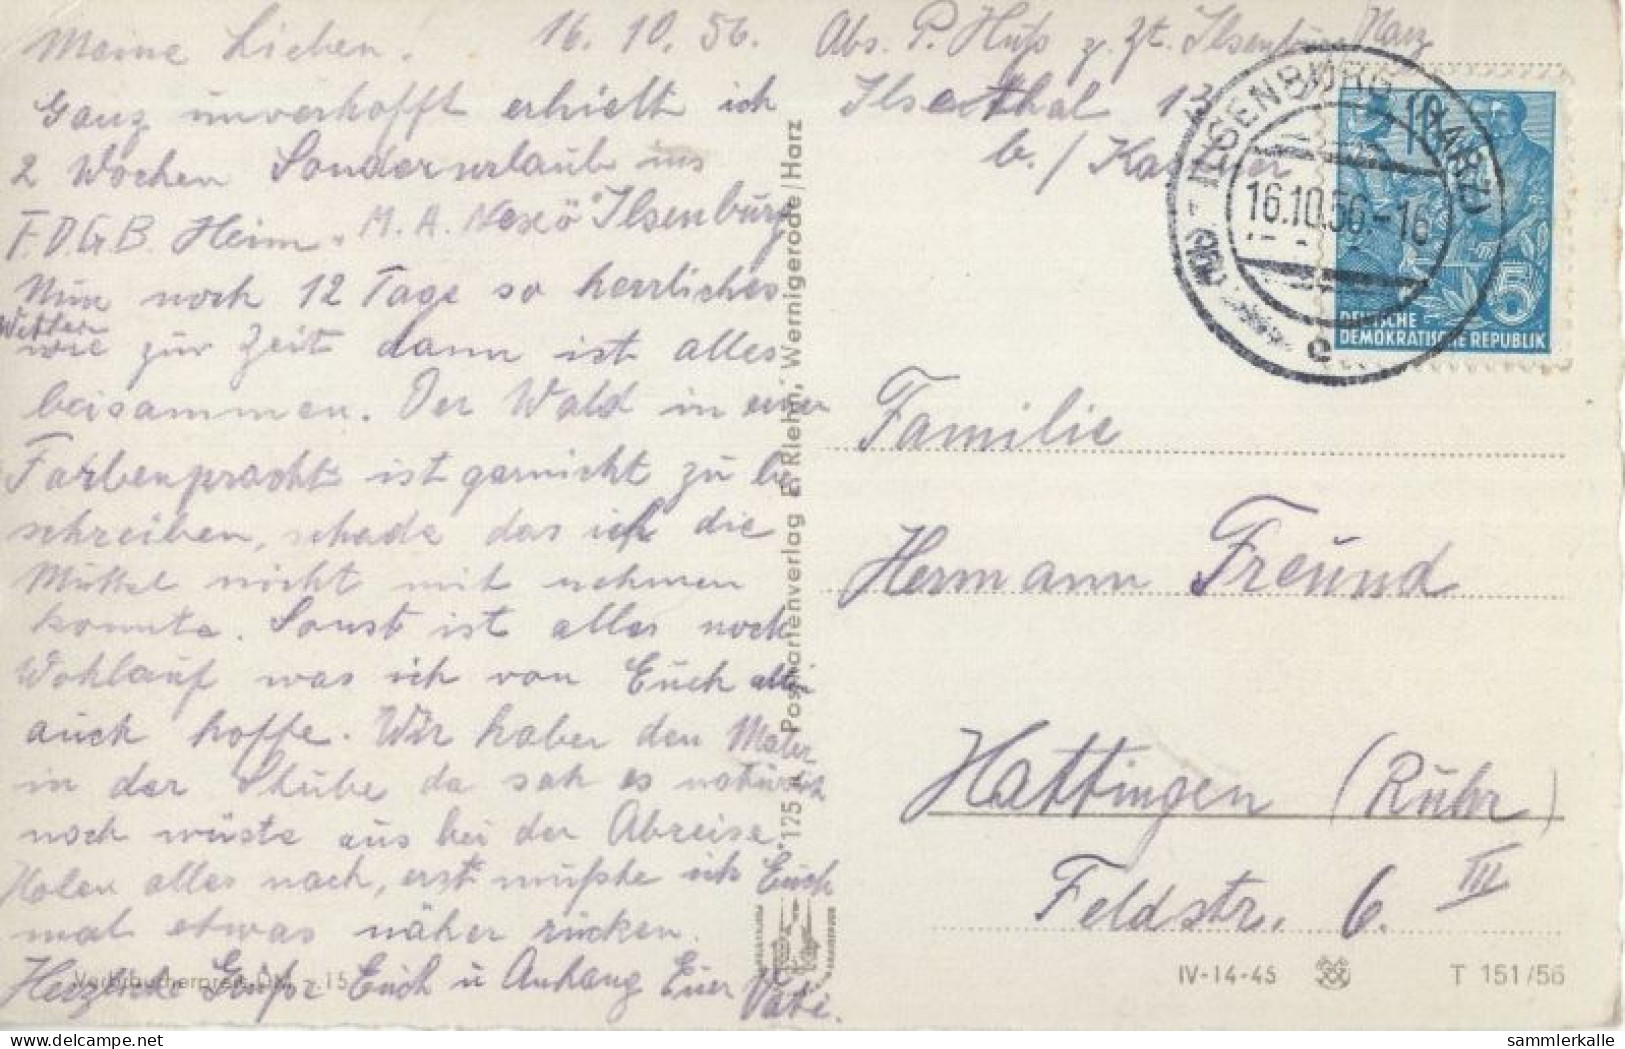 Meine Lieben. 16. 10. 56.
Ganz unverhofft erhielt ich
2 Wochen Sonderurlaub ins
F.D.G.B. Heim „M. A. Nexö" Ilsenburg
Nun noch 12 Tage so herrliches
Wetter
wie zur Zeit dann ist alles
beisammen. Der Wald in einer
Farbenpracht ist garnicht zu be
schreiben, schade das ich die
Müttel nicht mit nehmen
konnte. Sonst ist alles noch
Wohlauf was ich von Euch allen
auch hoffe. Wir haben den Maler
in der Stube da sah es natürlich
noch wüste aus bei der Abreise.
Holen alles nach, erst mußte ich Euch
mal etwas näher rücken.
Herzliche Grüße Euch u Anhang Euer Vati.
Verbraucherpreis DM -.15
175 Postkartenverlag E. Riehn, Wernigerode/Harz
Abs. P. Huß z. Zt. Ilsenburg Harz
Ilsethal 13
b./
ILSENBURG (HARZ)
16.10.56.-16
e
5
DEUTSCHE
DEMOKRATISCHE REPUBLIK
Familie
Hermann Freund
Hattingen (Ruhr)
Feldstr. 6. III
IV-14-45 T 151/56
sammlerkalle